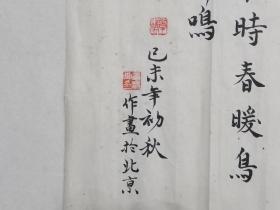 時春暖鳥
鳴
己未年初秋
作畫於北京